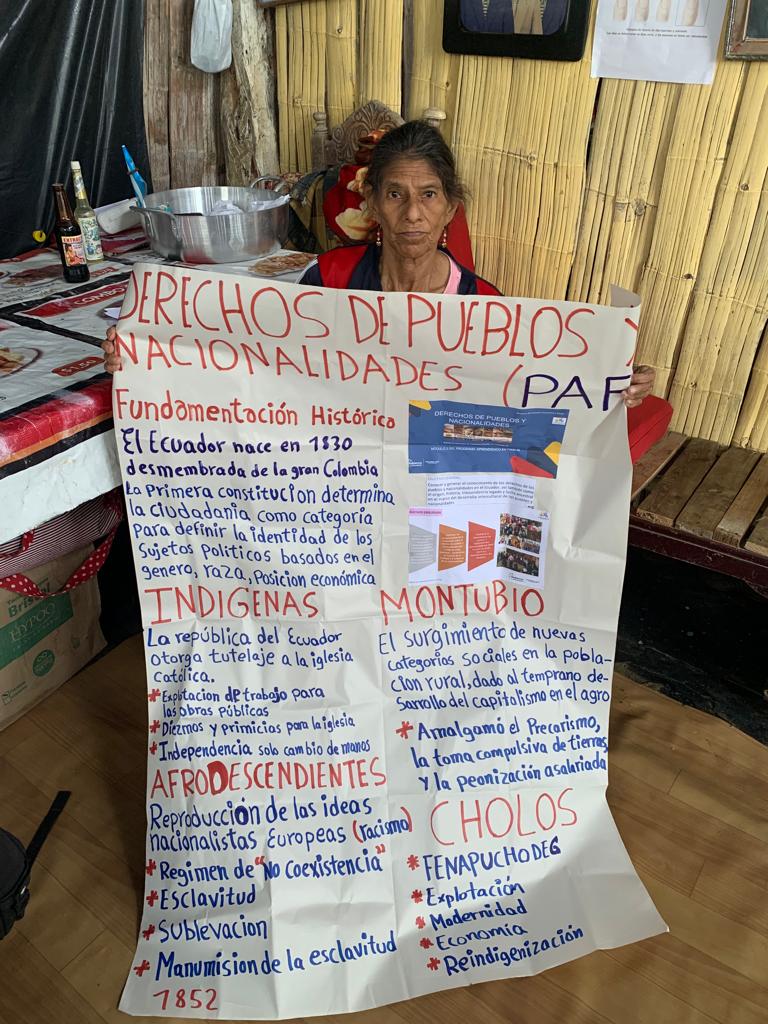 DERECHOS DE PUEBLOS Y
NACIONALIDADES (PAF
Fundamentación Histórica
El Ecuador nace en 1830
desmembrada de la gran Colombia
La primera constitucion determina
la ciudadania como categoria
para definir la identidad de los
Sujetos Politicos basados en el
genero, raza, posicion económica
DERECHOS DE PUEBLOS Y
NACIONALIDADES
INDIGENAS
La república del Ecuador
otorga tutelaje a la iglesia
católica.
* Explotacion de trabajo para
las obras públicas
* Diezmos y primicias para la iglesia
* Independencia solo cambio de manos
MONTUBIO
El surgimiento de nuevas
categorias sociales en la pobla-
cion rural, dado al temprano de-
sarrollo del capitalismo en el agro
* Amalgamó el Precarismo,
la toma compulsiva de tierras
y la peonización asalariada
AFRODESCENDIENTES
Reproduccion de las ideas
nacionalistas Europeas (racismo)
* Regimen de "No Coexistencia"
* Esclavitud
* Sublevacion
* Manumision de la esclavitud
1852
CHOLOS
* FENAPUCHODEG
* Explotación
* Modernidad
* Economia
* Reindigenización
COMBO
HYPOO